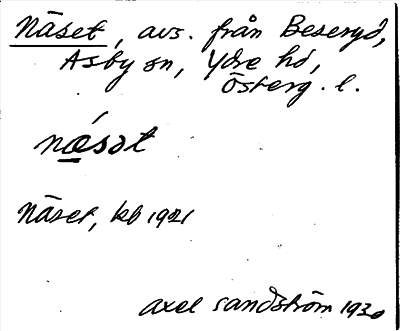 Näset, avs. från Beseryd,
Asby sn, Ydre hd,
Österg. l.
næ̀sət
Näset, kb 1921
Axel Sandström 1930